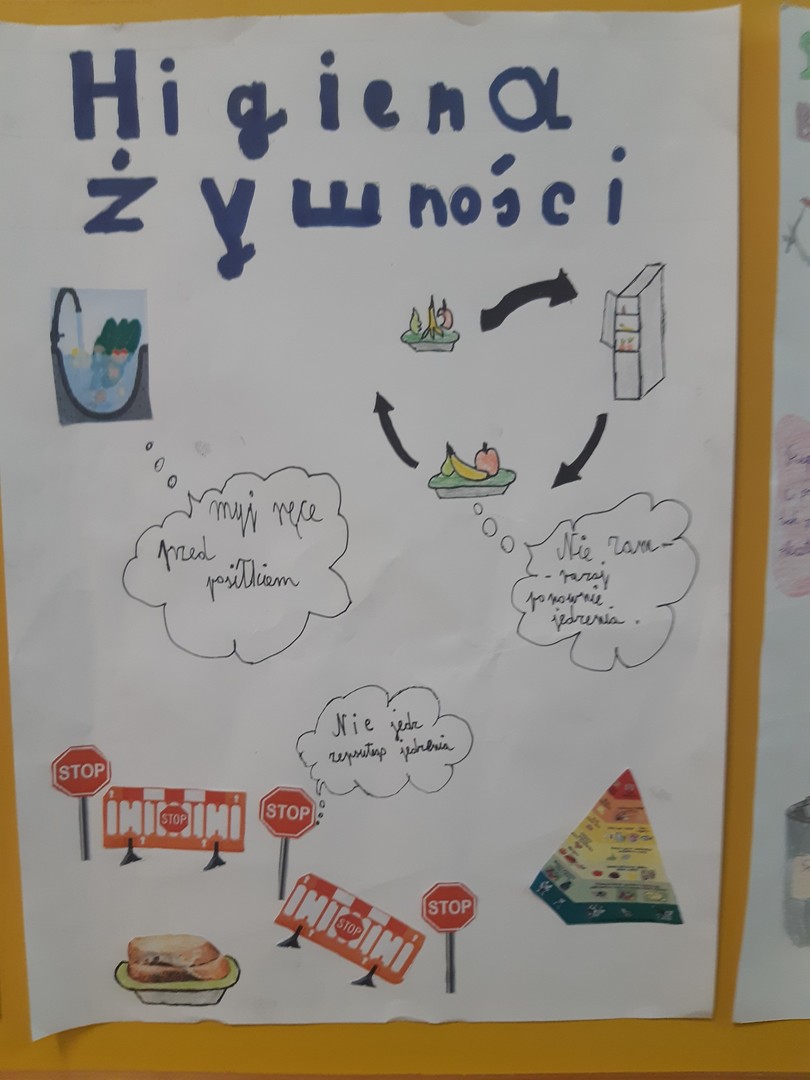 Higiena
Żywności
myj ręce
przed
posiłkiem
Nie zam-
- rażaj
ponownie
jedzenia.
Nie jedz
jedzenia
STOP
STOP
STOP
STOP
STOP